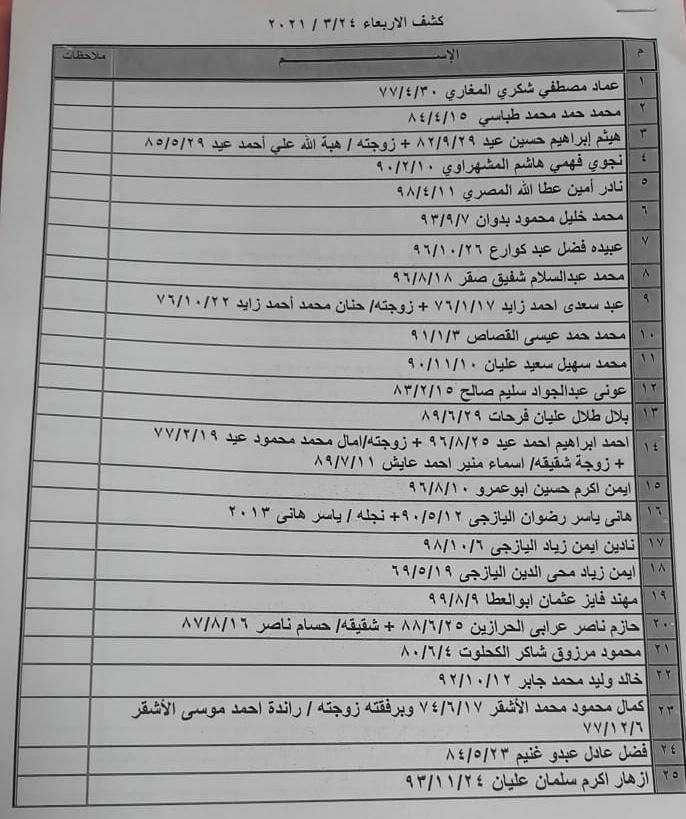 كشف الاربعاء ٢٠٢١ / ٣/٢٤
م الإســـــــــم ملاحظات
١ عماد مصطفي شكري المغاري ٧٧/٤/٣٠
٢ محمد حمد محمد طباسي ٨٤/٤/١٥
٣ هيثم إبراهيم حسين عيد ٨٢/٩/٢٩ + زوجته / هبة الله علي أحمد عيد ٨٥/٥/٢٩
٤ نجوي فهمي هاشم المشهراوي ٩٠/٢/١٠
٥ نادر أمين عطا الله المصري ٩٨/٤/١١
٦ محمد خليل محمود بدوان ٩٣/٩/٧
٧ عبيده فضل عبد كوارع ٩٦/١٠/٢٦
٨ محمد عبدالسلام شفيق صقر ٩٦/٨/١٨
٩ عبد سعدى احمد زايد ٧٦/١/١٧ + زوجته/ حنان محمد أحمد زايد ٧٦/١٠/٢٢
١٠ محمد حمد عيسى القصاص ٩١/١/٣
١١ محمد سهيل سعيد عليان ٩٠/١١/١٠
١٢ عونى عبدالجواد سليم صالح ٨٣/٢/١٥
١٣ بلال طلال عليان فرحات ٨٩/٦/٢٩
١٤ احمد ابراهيم احمد عيد ٩٦/٨/٢٥ + زوجته/امال محمد محمود عيد ٧٧/٢/١٩
+ زوجة شقيقه/ اسماء منير احمد عايش ٨٩/٧/١١
١٥ ايمن اكرم حسين ابوعمرو ٩٦/٨/١٠
١٦ هانى ياسر رضوان اليازجى ٩٠/٥/١٢+ نجله / ياسر هانى ٢٠١٣
١٧ نادين ايمن زياد اليازجى ٩٨/١٠/٦
١٨ ايمن زياد محى الدين اليازجى ٦٩/٥/١٩
١٩ مهند فايز عثمان ابوالعطا ٩٩/٨/٩
٢٠ حازم ناصر عرابى الحرازين ٨٨/٦/٢٥ + شقيقه/ حسام ناصر ٨٧/٨/١٦
٢١ محمود مرزوق شاكر الكحلوت ٨٠/٦/٤
٢٢ خالد وليد محمد جابر ٩٢/١٠/١٢
٢٣ كمال محمود محمد الأشقر ٧٤/٦/١٧ وبرفقته زوجته / راندة احمد موسى الأشقر
٧٧/١٢/٦
٢٤ فضل عادل عبدو غنيم ٨٤/٥/٢٣
٢٥ ازهار اكرم سلمان عليان ٩٣/١١/٢٤